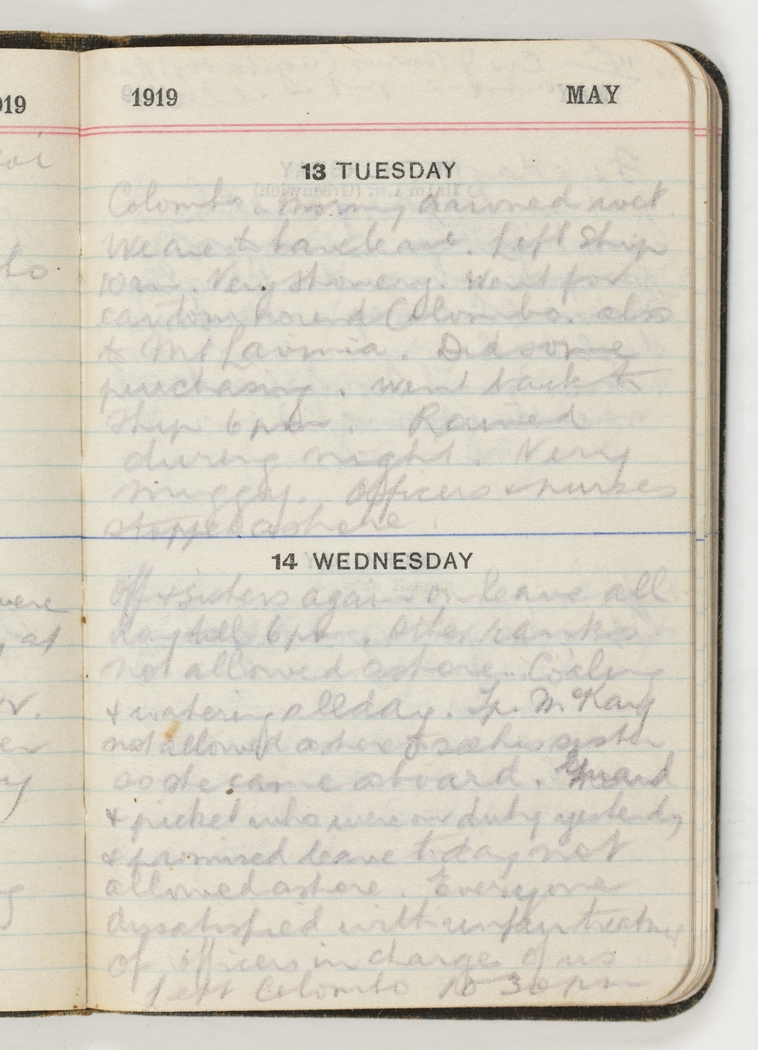 019
1919 MAY
13 TUESDAY
Colombo. Morning dawned wet.
We are to have leave. Left Ship
10 am. Very showery. Went for
car tour round Colombo. also
to Mt Lavinia. Did some
purchasing. Went back to
Ship 6 pm. Rained
during night. Very
muggy. Officers & nurses
stopped ashore.
14 WEDNESDAY
Off & sisters again on leave all
day till 6 pm. Other ranks
not allowed ashore. Coaling
& watering all day. Tpr McKay
not allowed ashore to see his sister
so she came aboard. Guard
& picket who were on duty yesterday
& promised leave today not
allowed ashore. Everyone
dissatisfied with unfair treatmt
of officers in charge of us
Left Colombo 10 30 pm
were
at
er